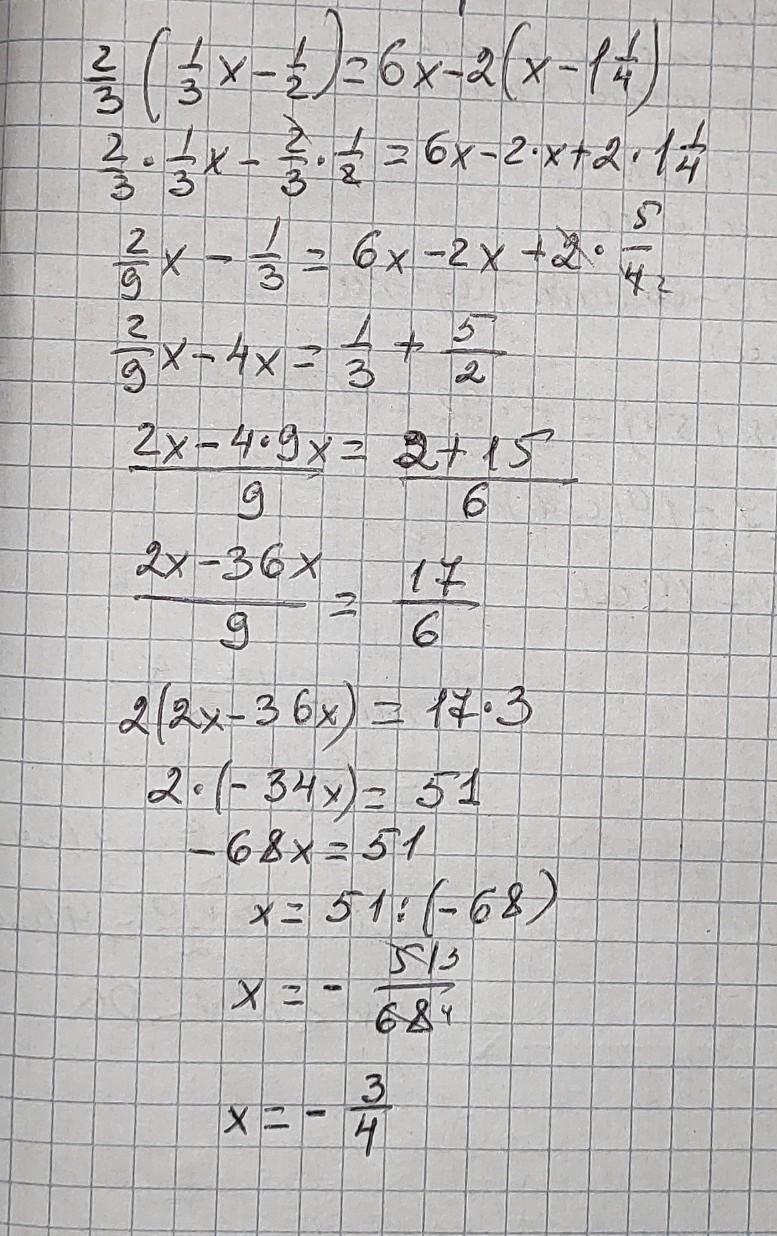 2/3 (1/3 x - 1/2) = 6x - 2(x - 1 1/4)
2/3 · 1/3 x - 2/3 · 1/2 = 6x - 2·x + 2 · 1 1/4
2/9 x - 1/3 = 6x - 2x + 2 · 5/4 2
2/9 x - 4x = 1/3 + 5/2
(2x - 4·9x)/9 = (2+15)/6
(2x - 36x)/9 = 17/6
2(2x - 36x) = 17·3
2·(- 34x) = 51
- 68x = 51
x = 51 : (-68)
x = - 51 3/68 4
x = - 3/4